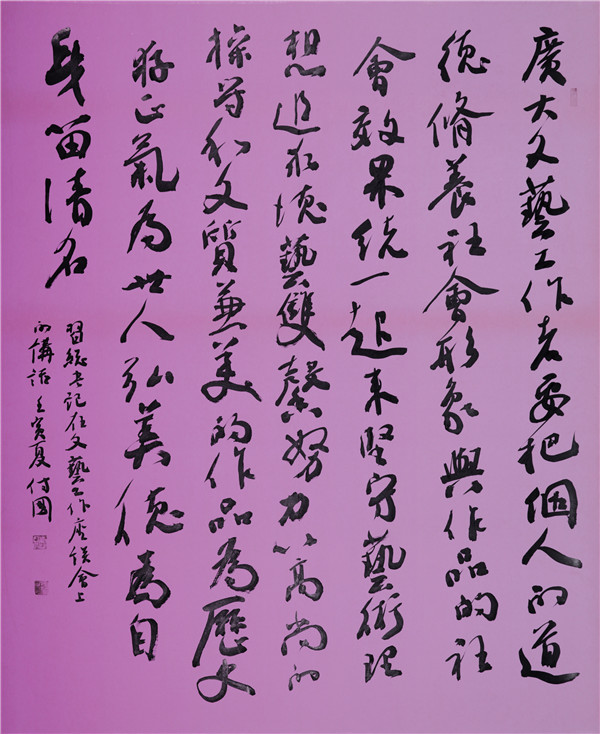 廣大文藝工作者要把個人的道
德脩養社會形象與作品的社
會效果統一起來堅守藝術理
想追求德藝雙馨努力以高尚的
操守和文質兼美的作品為歷史
存正氣為世人弘美德為自
身留清名
習總書記在文藝工作座談會上
的講話 壬寅夏付國